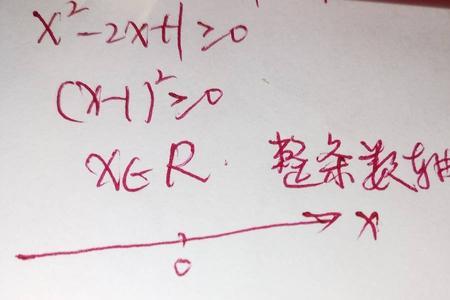 x²-2x+1≥0
(x-1)²≥0
x∈R. 整条数轴
x
0